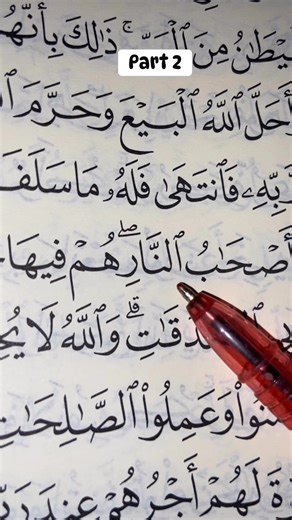 Part 2
يْطَٰنُ مِنَ ذَٰلِكَ بِأَنَّهُ
أَحَلَّ ٱللَّهُ ٱلْبَيْعَ وَحَرَّمَ
رَّبِّهِۦ فَٱنتَهَىٰ فَلَهُۥ مَا سَلَفَ
أَصْحَٰبُ ٱلنَّارِ ۖ هُمْ فِيهَا
دَقَٰتِ ۗ وَٱللَّهُ لَا يُحِ
نُوا۟ وَعَمِلُوا۟ ٱلصَّٰلِحَٰتِ
ةَ لَهُمْ أَجْرُهُمْ عِندَ رَبِّ